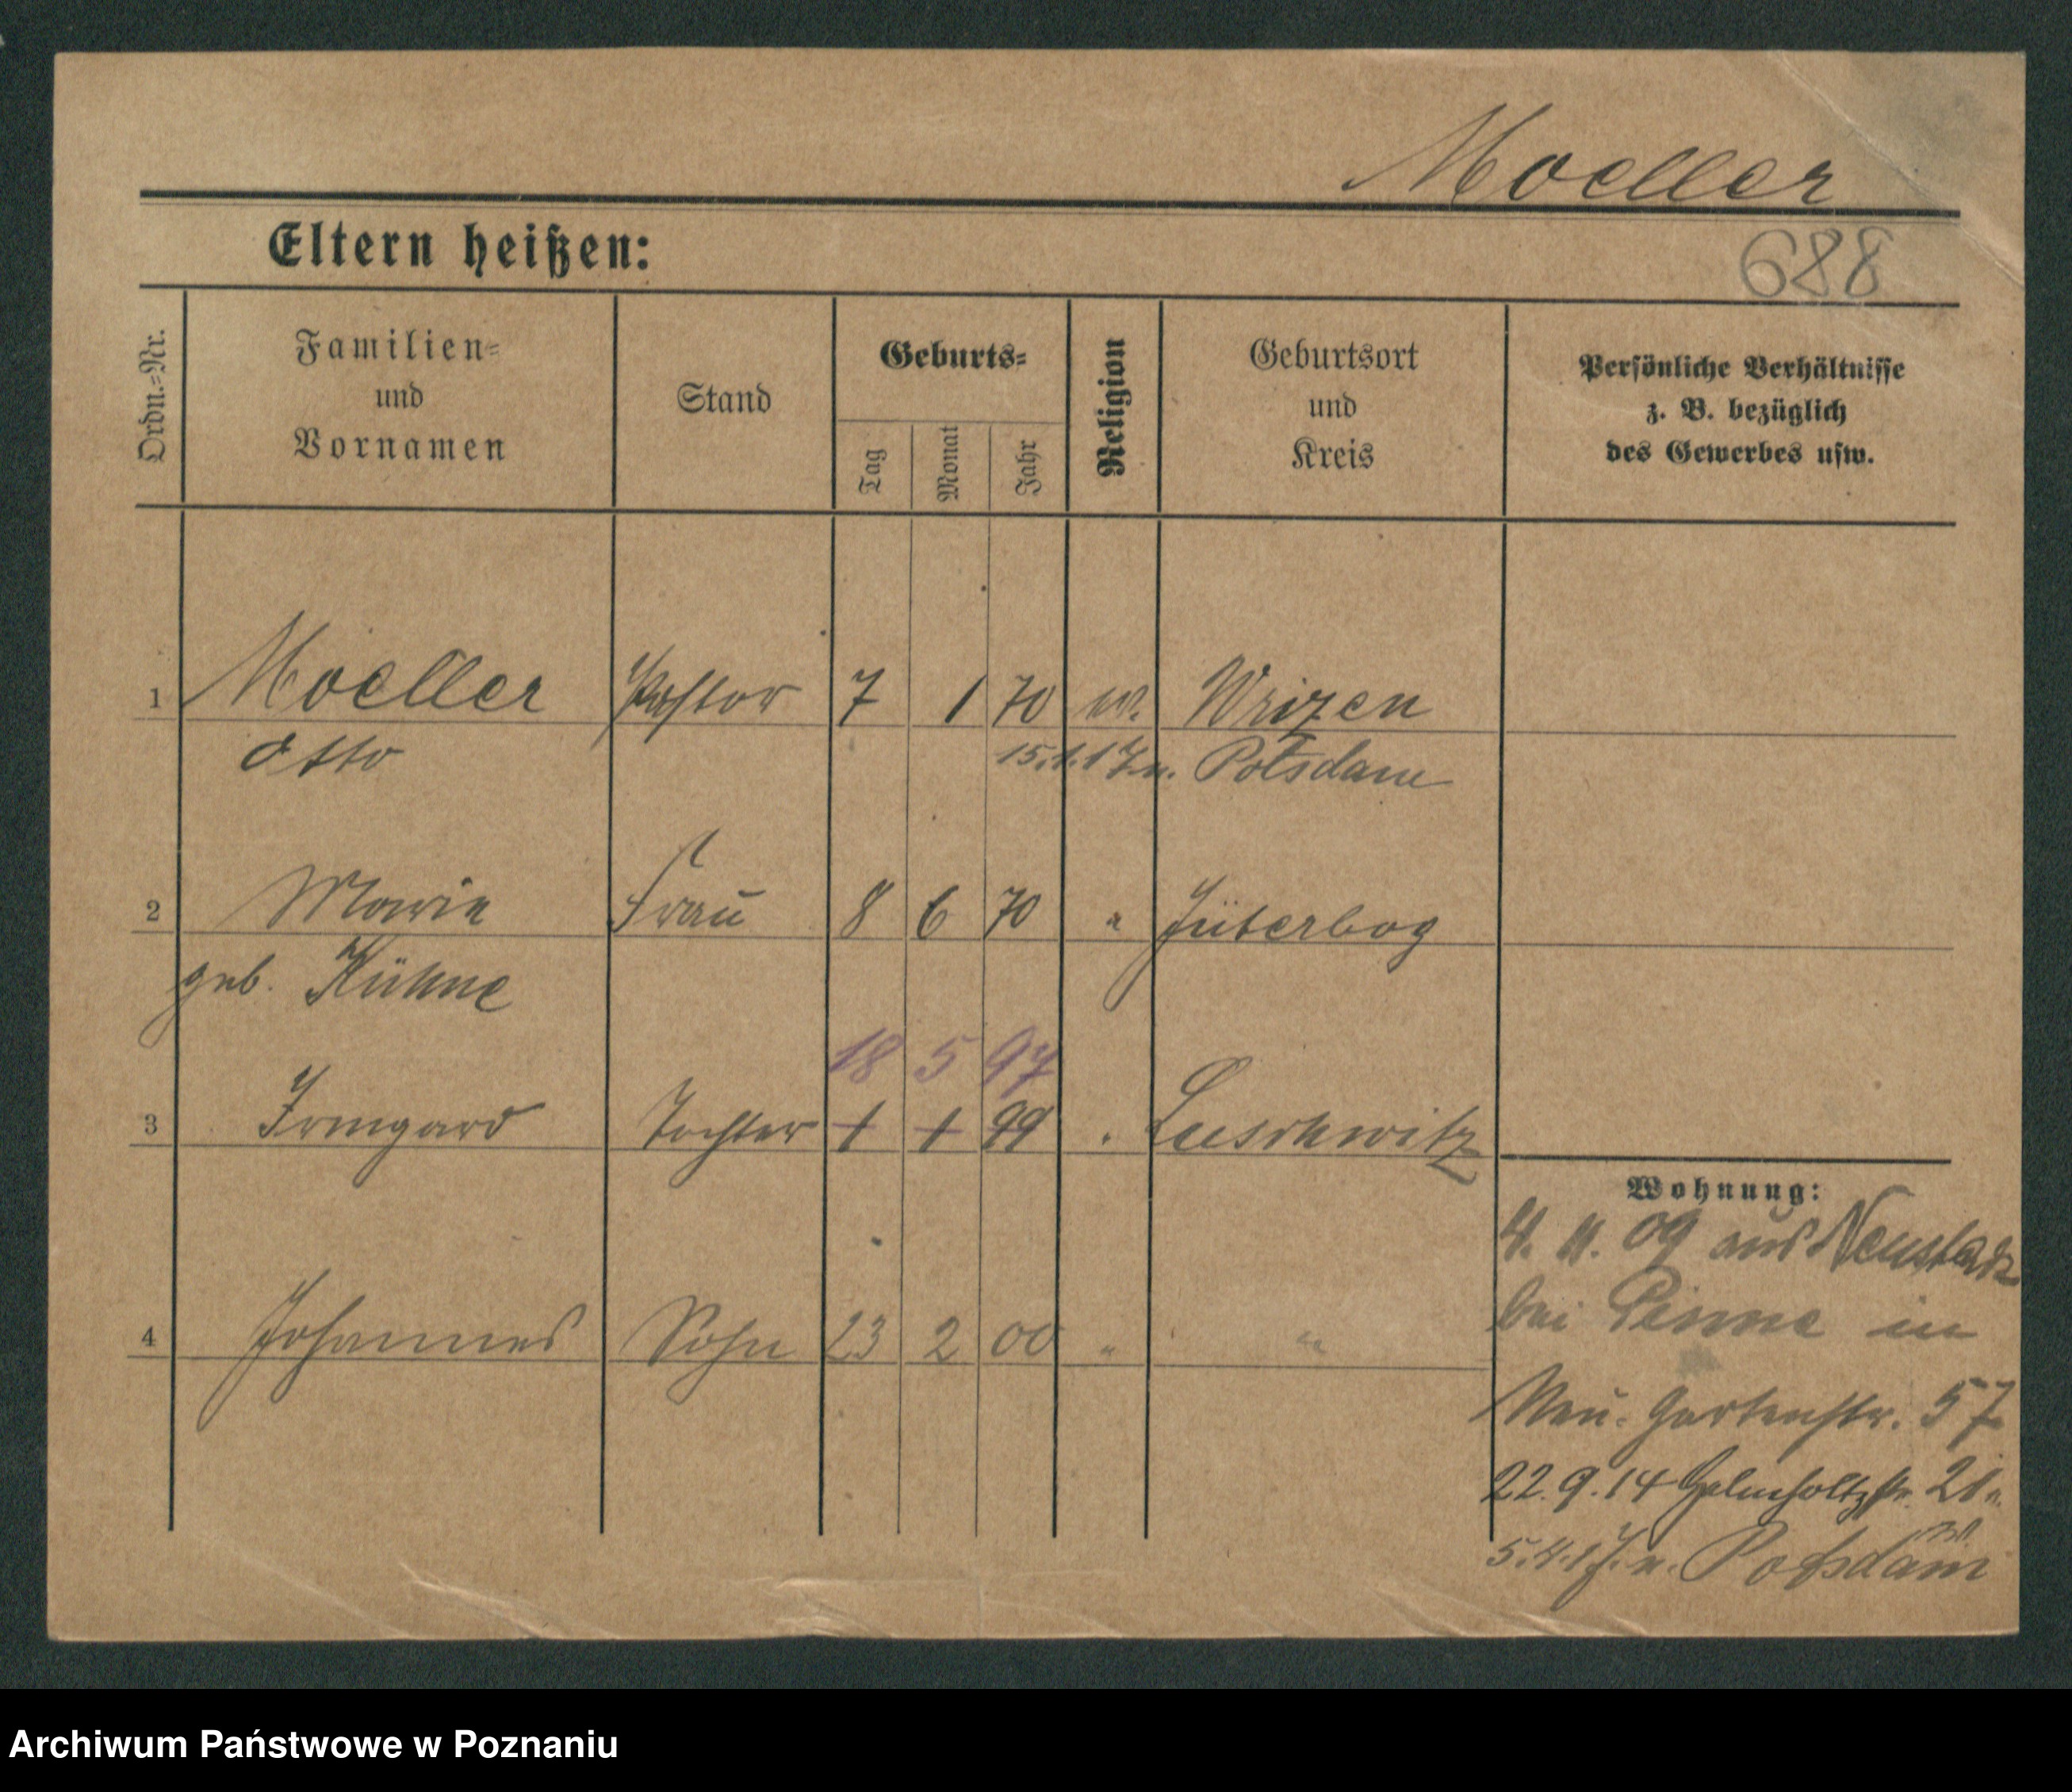 Moeller
Eltern heißen:
688
Ordn.-Nr.
Familien-
und
Vornamen
Stand
Geburts-
Tag
Monat
Jahr
Religion
Geburtsort
und
Kreis
Persönliche Verhältnisse
z. B. bezüglich
des Gewerbes usw.
1 Moeller Pastor 7 1 70 ev. Wrizen
Otto 15.1.17 n. Potsdam
2 Marie Frau 8 6 70 " Jüterbog
geb. Kühne
18 5 97
3 Irmgard Tochter 1 1 99 " Luschwitz
Wohnung:
4. 11. 09 aus Neustadt
bei Pinne in
4 Johannes Sohn 23 2 00 " "
Neu. Gartenstr. 57
22.9.14 Helmholtzstr. 21
5.4.17. n. Potsdam
Archiwum Państwowe w Poznaniu